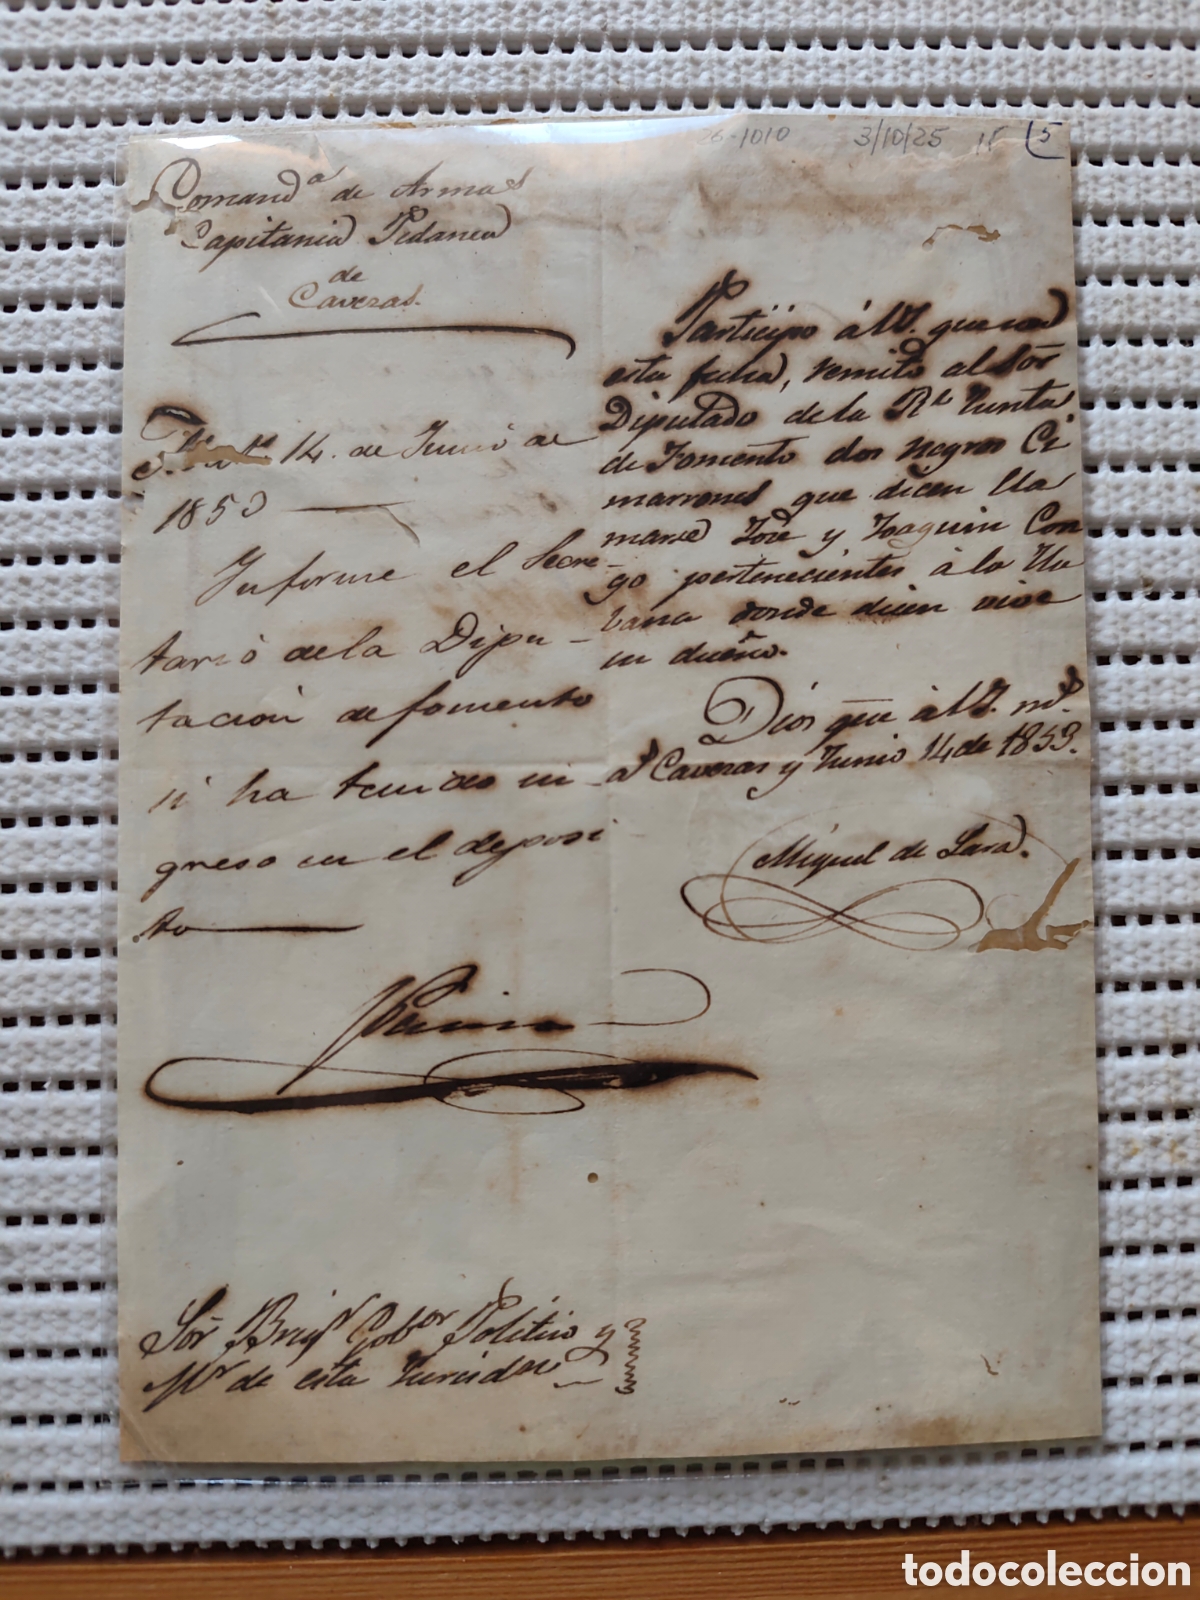 26-1010 3/10/25 15 5
Comand.ª de Armas
Capitania Pedanea
de
Caveras.
Participo á V.S. que con
esta fecha, remito al Sōr
Diputado de la R.l Junta
de Fomento dos negros Ci
marrones que dicen lla
marse José y Joaquin Con
go pertenecientes á la Ha
bana donde dicen vive
su dueño.
Dios gue á V.S. m.s
a.s Caveras y Junio 14 de 1853.
Miguel de Lara.
14. de Junio de
1853
Informe el Secre-
tario de la Dipu-
tación de fomento
si ha tenido in-
greso en el deposi
to
Sōr Brig.r Gob.or Politico y
M.r de esta Jurisd.on
todocoleccion